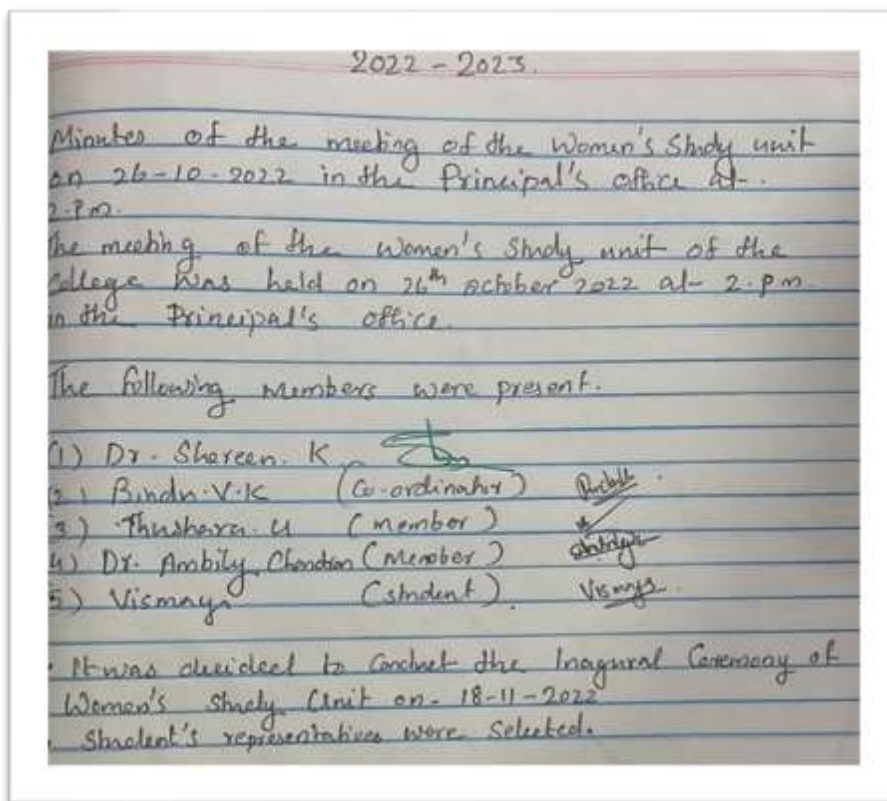 2022 - 2023.
Minutes of the meeting of the Women's Study unit
on 26-10-2022 in the Principal's office at.
2.P.m.
The meeting of the Women's Study unit of the
College was held on 26th october 2022 at 2.p.m.
in the Principal's office.
The following members were present.
(1) Dr. Shareen. K
(2) Bindu.V.K (Co-ordinator)
3) Thushara.U (member)
4) Dr. Ambily Chandran (Member)
5) Vismaya (student) Vismaya
. It was decided to Conduct the Inagural Ceremony of
Women's Study Unit on - 18-11-2022
. Student's representatives were Selected.